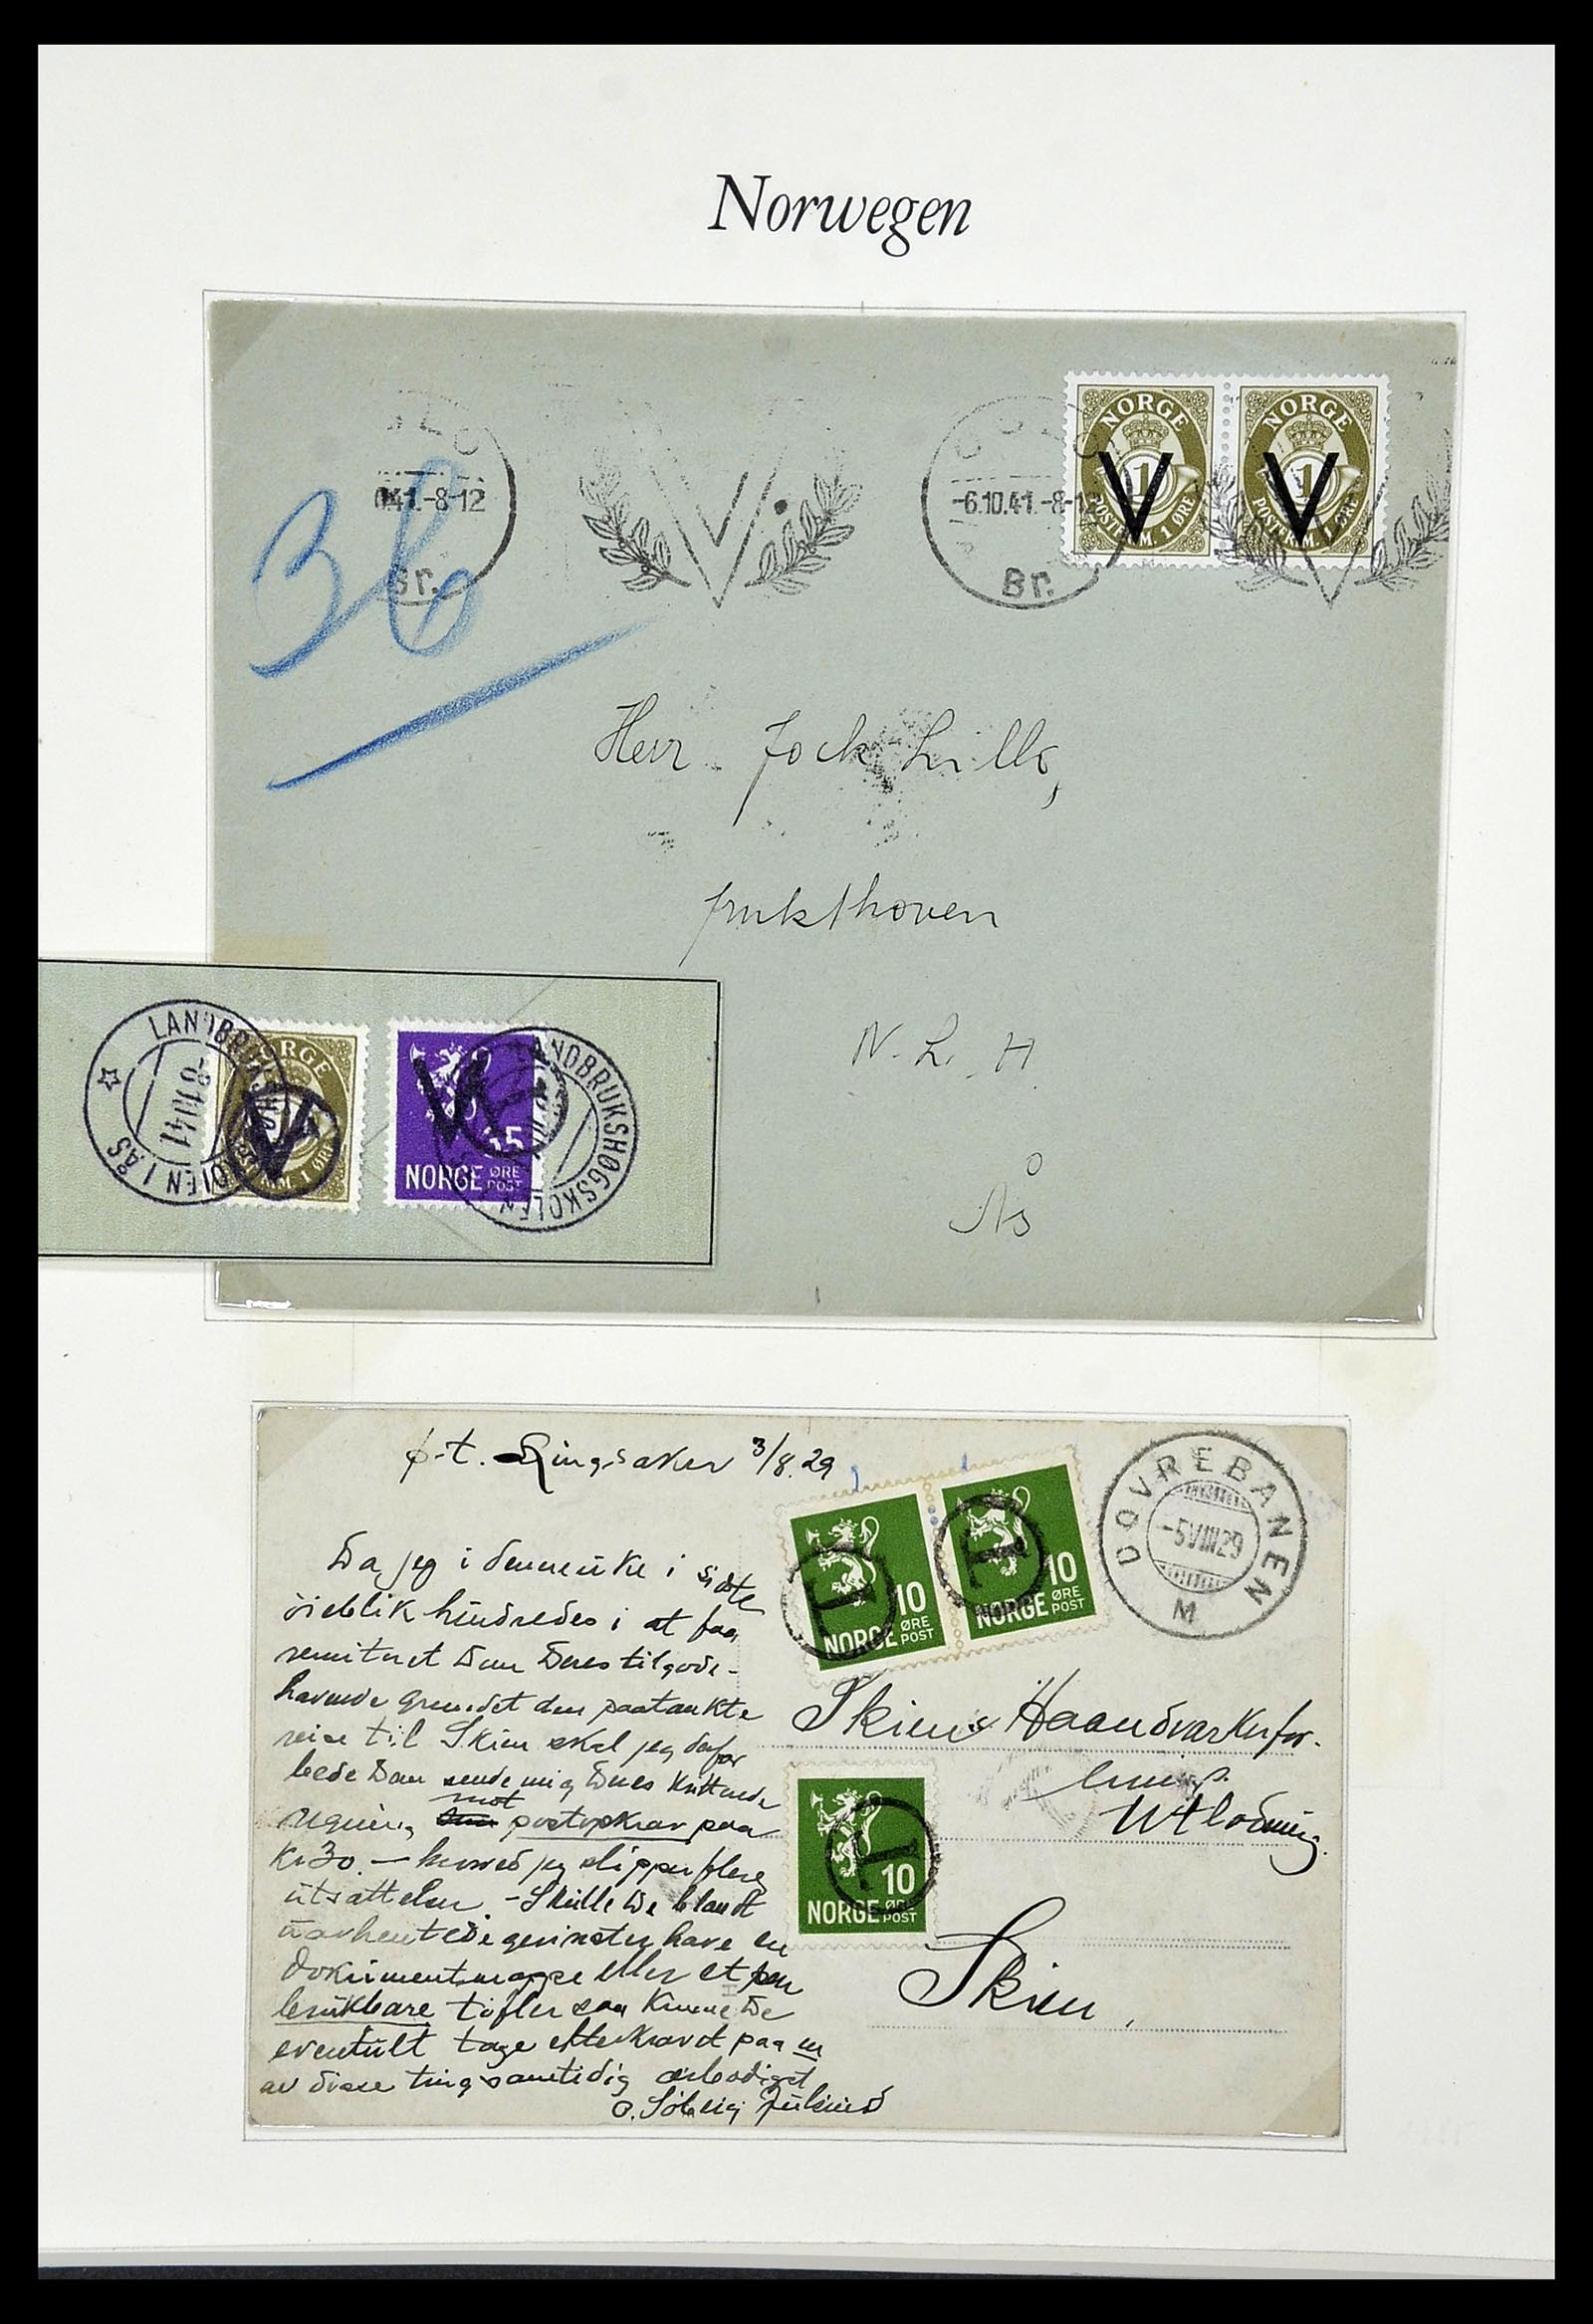 Norwegen
NORGE
1
POSTFRIM. 1 ØRE
V
NORGE
1
POSTFRIM. 1 ØRE
V
OSLO
41.-8-12
Br.
V
OSLO
-6.10.41.-8-12
Br.
V
36
Herr Jock Lille,
frukthoven
N. L. H.
Ås
LANDBRUKSHØGSKOLEN I ÅS
-8.10.41
NORGE
1 ØRE
V
T
V
15
NORGE ØRE POST
LANDBRUKSHØGSKOLEN
p.t. Ringsaker 3/8.29
Da jeg i denne uke i sidste
öieblik hindredes i at faa
remitteret Dem Deres tilgode-
havende grundet den paatænkte
reise til Skien skal jeg derfor
bede Dem sende mig Deres
mot
postopkrav paa
Kr 30.— jeg slipper flere
utsættelser. - Skulle De blandt
uavhentede gevinster have en
Dokumentmappe eller et par
brukbare töfler saa kunne De
eventuelt tage efterkravet paa en
av disse ting samtidig ærbødigst
10
NORGE ØRE POST
T
10
NORGE ØRE POST
T
DOVREBANEN
-5 VIII 29
M
Skiens Haandværkerfor-
ening.
Utlodning.
10
NORGE ØRE POST
T
Skien,